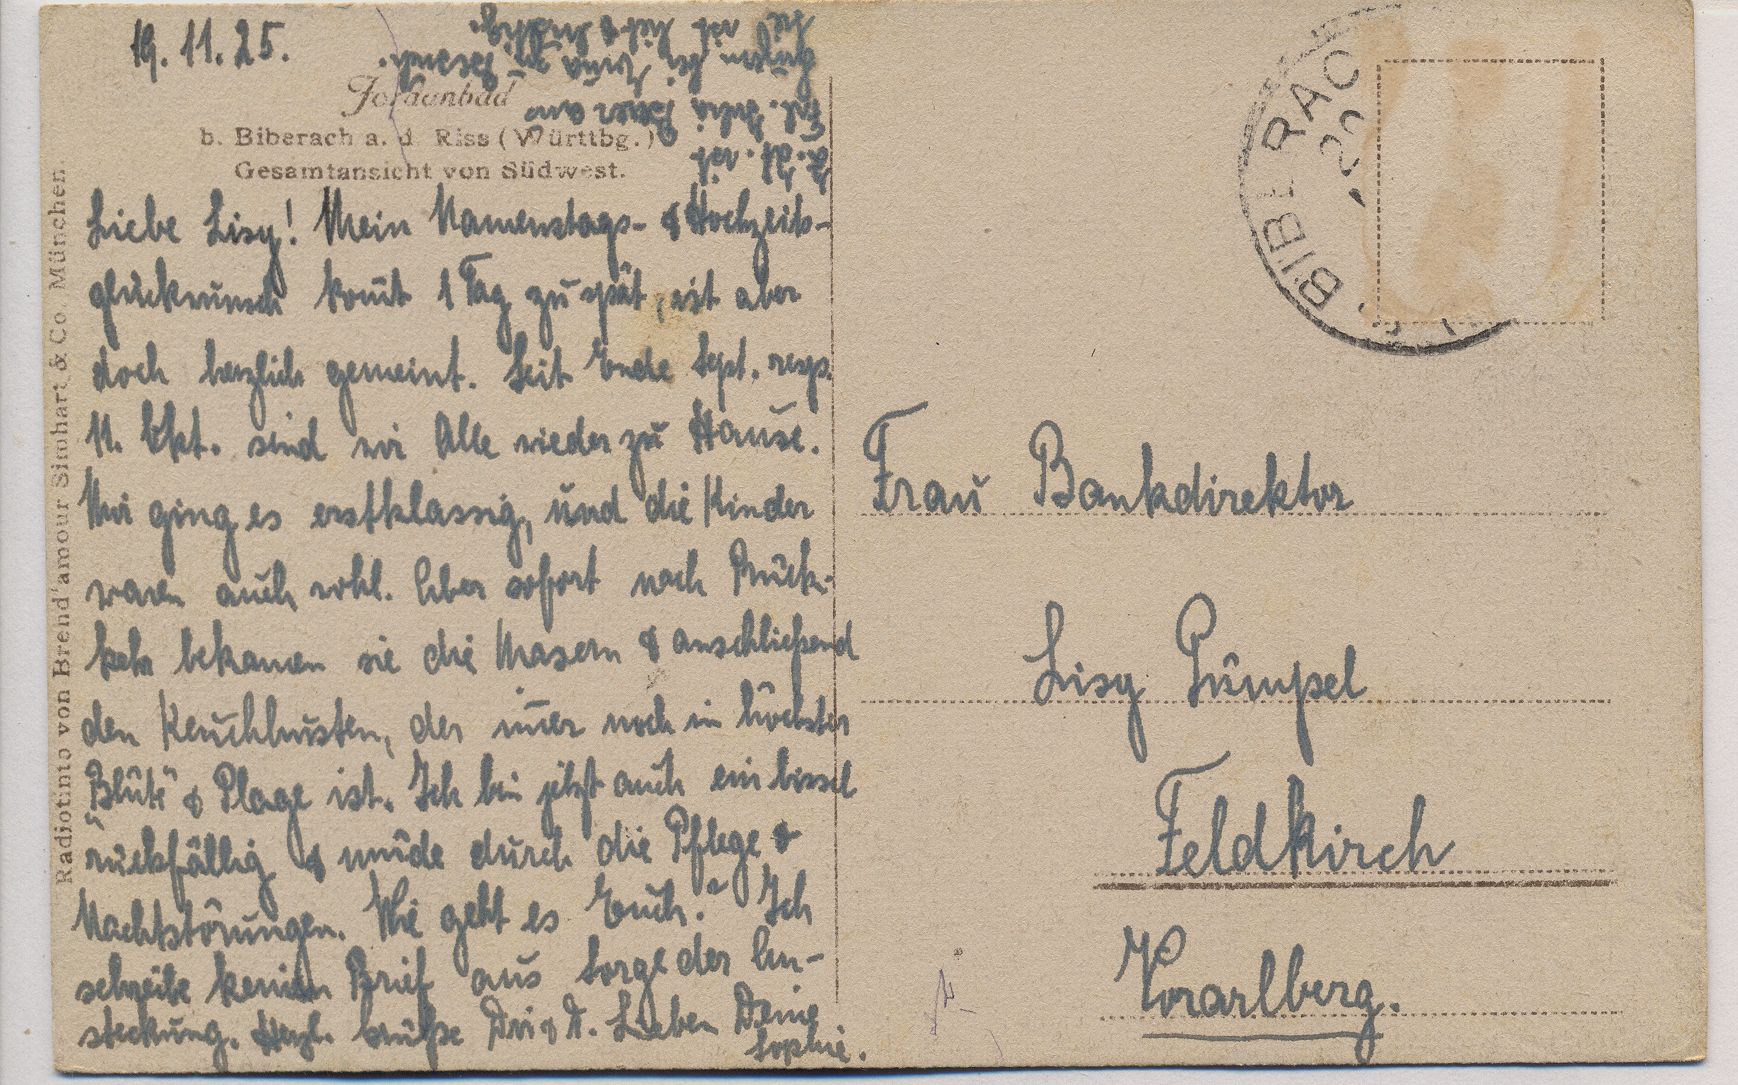 19.11.25.
Jordanbad
b. Biberach a. d. Riss (Württbg.)
Gesamtansicht von Südwest.
Radiotinto von Brend'amour Simhart & Co. München.
Liebe Lisy! Mein Namenstags- & Hochzeits-
glückwunsch komt 1 Tag zu spät, ist aber
doch herzlich gemeint. Seit Ende Sept. resp.
11. Okt. sind wir Alle wieder zu Hause.
Mir ging es erstklassig, und die Kinder
waren auch wohl. Aber sofort nach Rück-
kehr bekamen sie die Masern & anschließend
den Keuchhusten, der imer noch in höchster
Blüte & Plage ist. Ich bin jetzt auch ein bissel
rückfällig & müde durch die Pflege &
Nachtstörungen. Wie geht es Euch? Ich
schreibe keinen Brief aus Sorge der An-
steckung. Herzl. Grüße Dir & D. Lieben Deine
Sophie.
z. Zt. ist
BIBERACH
20
Frau Bankdirektor
Lisy Gümpel
Feldkirch
Vorarlberg.